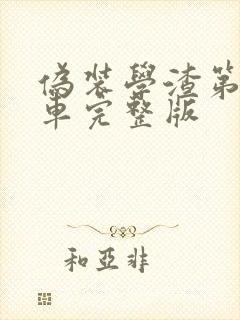 偽裝學渣第
車完整版
和亞非